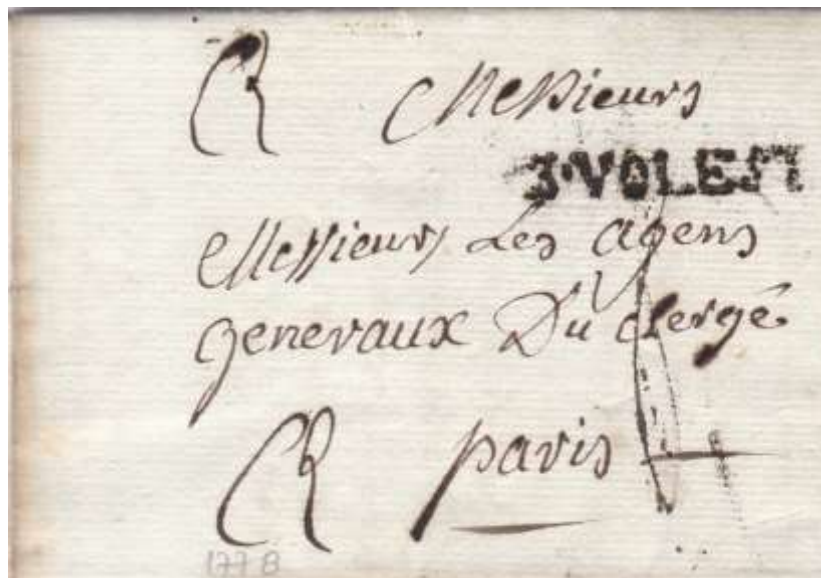 Messieurs
3·VOLEM
Messieurs Les agens
generaux Du Clergé
paris
1778